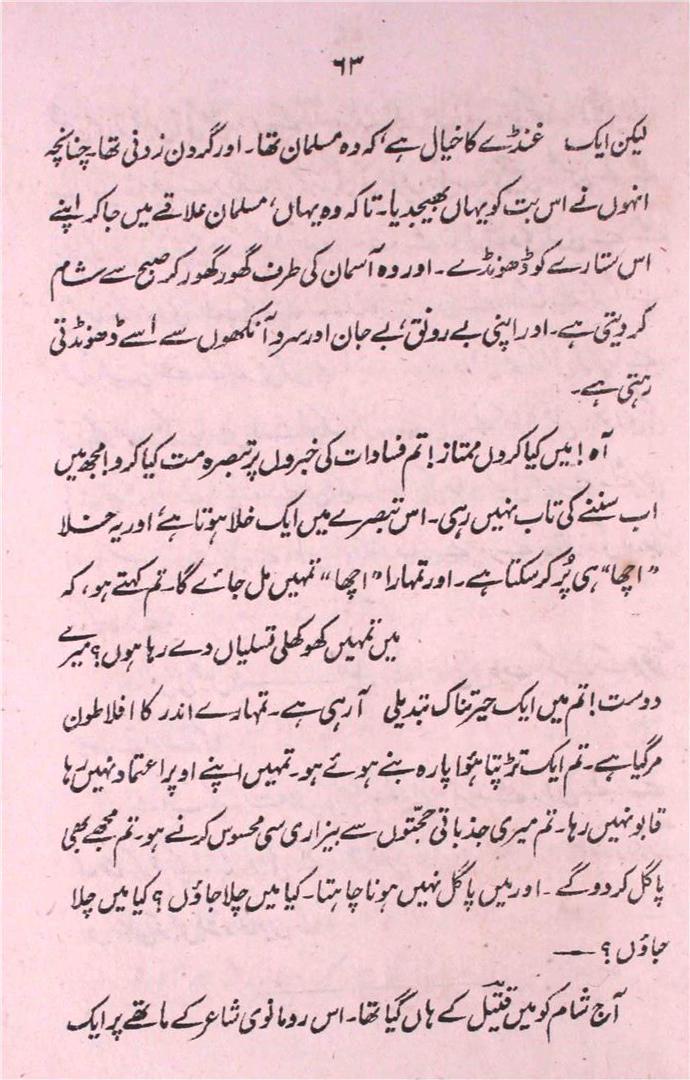 ۶۳
لیکن ایک غنڈے کا خیال ہے، کہ وہ مسلمان تھا۔ اور گردن زدنی تھا۔ چنانچہ
انہوں نے اس بت کو یہاں بھیجدیا۔ تاکہ وہ یہاں، مسلمان علاقے میں جا کر اپنے
اس ستارے کو ڈھونڈے۔ اور وہ آسمان کی طرف گھور گھور کر صبح سے شام
کر دیتی ہے۔ اور اپنی بے رونق، بے جان اور سرد آنکھوں سے اُسے ڈھونڈتی
رہتی ہے۔
آہ! میں کیا کروں ممتاز! تم فسادات کی خبروں پر تبصرہ مت کیا کرو! مجھ میں
اب سننے کی تاب نہیں رہی۔ اس تبصرے میں ایک خلا ہوتا ہے، اور یہ خلا
"اچھا" ہی پُر کر سکتا ہے۔ اور تمہارا "اچھا" تمہیں مل جائے گا۔ تم کہتے ہو، کہ
میں تمہیں کھوکھلی تسلیاں دے رہا ہوں؟ میرے
دوست! تم میں ایک حیرتناک تبدیلی آ رہی ہے۔ تمہارے اندر کا افلاطون
مر گیا ہے۔ تم ایک تڑپتا ہؤا پارہ بنے ہوئے ہو۔ تمہیں اپنے اوپر اعتماد نہیں رہا
قابو نہیں رہا۔ تم میری جذباتی حجّتوں سے بیزاری سی محسوس کرنے ہو۔ تم مجھے بھی
پاگل کر دو گے۔ اور میں پاگل نہیں ہونا چاہتا۔ کیا میں چلا جاؤں؟ کیا میں چلا
جاؤں؟ —
آج شام کو میں قتیل کے ہاں گیا تھا۔ اس رومانوی شاعر کے ماتھے پر ایک